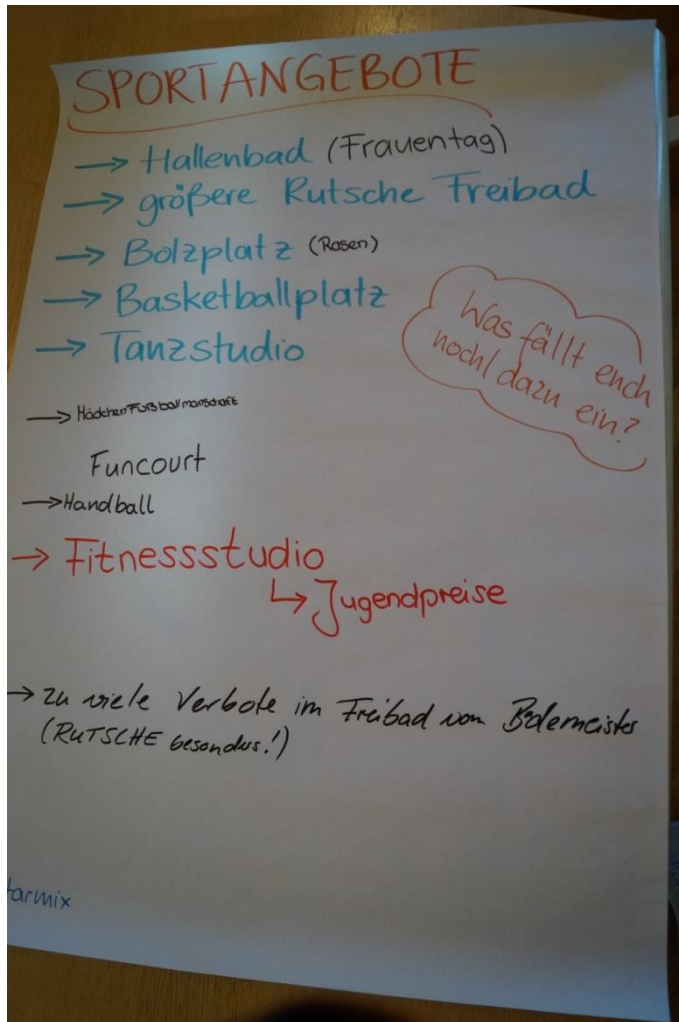 SPORTANGEBOTE
→ Hallenbad (Frauentag)
→ größere Rutsche Freibad
→ Bolzplatz (Rasen)
→ Basketballplatz
→ Tanzstudio
Was fällt euch
noch dazu ein?
→ MädchenFußballmanschaft
Funcourt
→ Handball
→ Fitnessstudio
↳ Jugendpreise
→ zu viele Verbote im Freibad vom Bademeister
(RUTSCHE besonders!)
tarmix